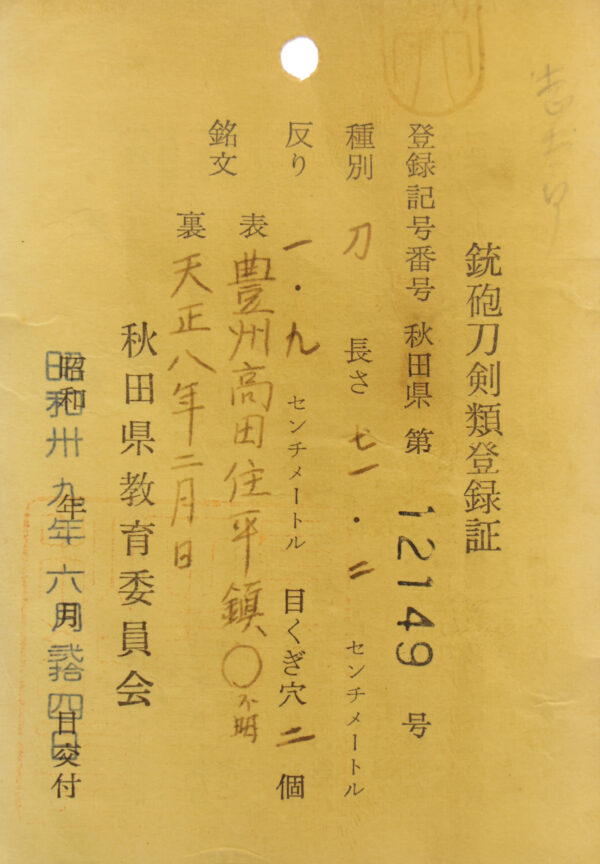 銃砲刀剣類登録証
登録記号番号 秋田県 第 12149 号
種別 刀 長さ 七一・二 センチメートル
反り 一・九 センチメートル 目くぎ穴 二 個
銘文 表 豊州高田住平鎮〇不明
裏 天正八年二月日
秋田県教育委員会
昭和卅九年六月弐拾四日交付